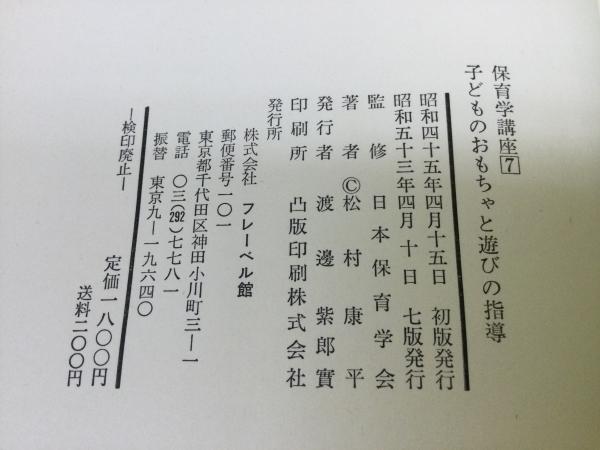 保育学講座7
子どものおもちゃと遊びの指導
昭和四十五年四月十五日 初版発行
昭和五十三年四月十日 七版発行
監修 日本保育学会
著者 ©松村康平
発行者 渡邊紫郎實
印刷所 凸版印刷株式会社
発行所
株式会社 フレーベル館
郵便番号一〇一
東京都千代田区神田小川町三―一
電話 〇三(292)七七八一
振替 東京九―一九六四〇
―検印廃止―
定価一八〇〇円
送料二〇〇円